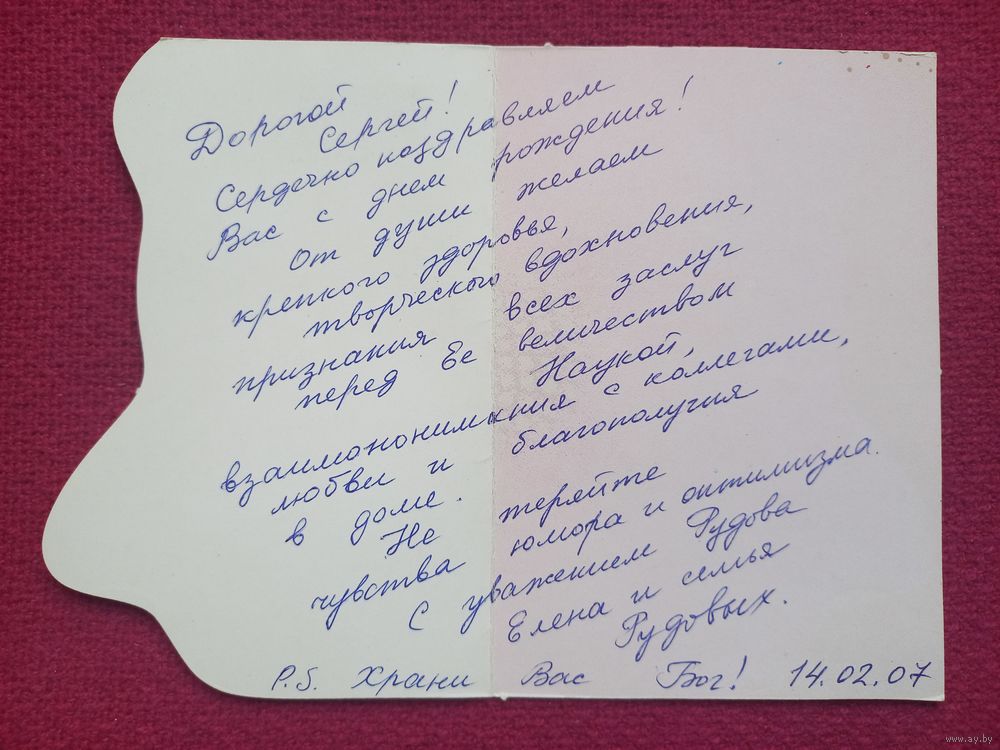 Дорогой
Сергей!
Сердечно поздравляем
Вас с днем рождения!
От души желаем
крепкого здоровья,
творческого вдохновения,
признания всех заслуг
перед Ее величеством
Наукой,
взаимопонимания с коллегами,
любви и благополучия
в доме.
Не теряйте
чувства юмора и оптимизма.
С уважением Рудова
Елена и семья
Рудовых.
P.S. Храни Вас Бог! 14.02.07
www.ay.by